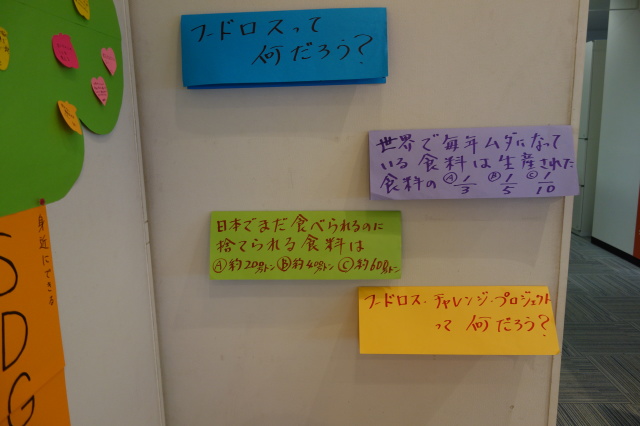 フードロスって
何だろう?
世界で毎年ムダになって
いる食料は生産された
食料の Ⓐ1/3 Ⓑ1/5 Ⓒ1/10
日本でまだ食べられるのに
捨てられる食料は
Ⓐ約200万トン Ⓑ約400万トン Ⓒ約600万トン
フードロス・チャレンジ・プロジェクト
って 何だろう?
身近にできる
SDG